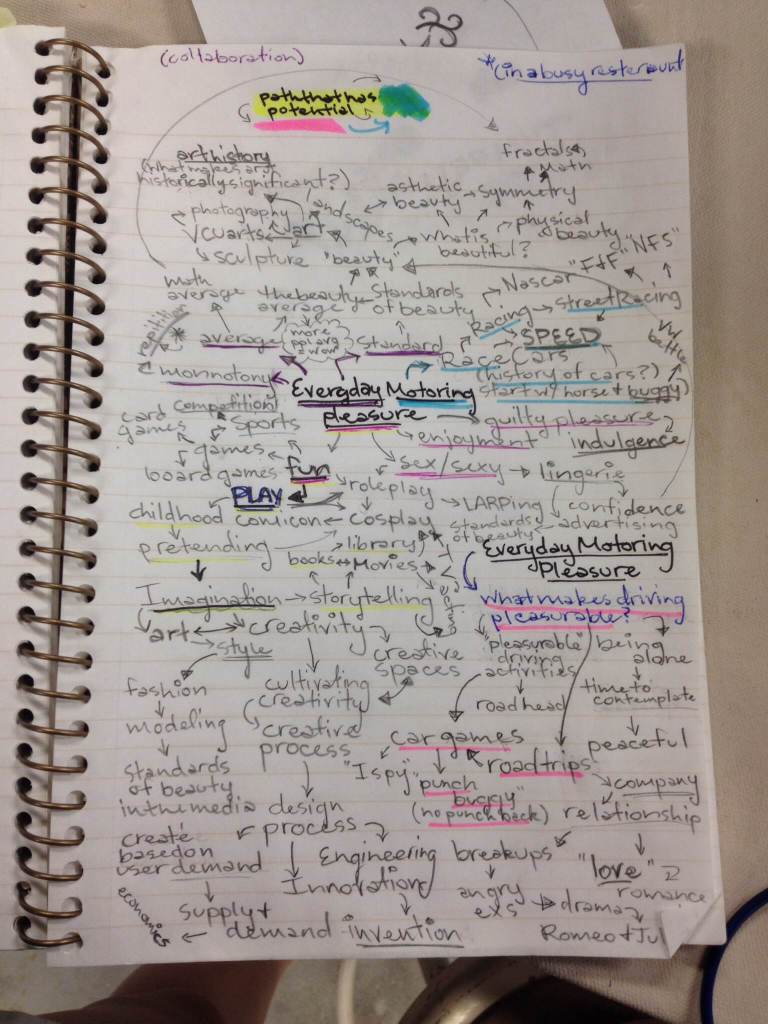 (collaboration)
*(in a busy resteraunt
path that has
potential
art history
(what makes art
historically significant?)
fractals
math
asthetic
beauty
symmetry
photography
landscapes
physical
beauty
VCUarts
art
what is
beautiful?
"NFS"
sculpture
"beauty"
"F+F"
Nascar
math
average
the beauty
average
Standards
of beauty
Racing
street Racing
repitition
*
average
more
ppl avg
= wow
Standard
SPEED
VW
bettle
Race Cars
monnotony
(history of cars?)
start w/ horse + buggy)
Everyday Motoring
pleasure
card
games
competition!
Sports
guilty pleasure
enjoyment
indulgence
games
fun
sex/sexy
lingerie
board games
roleplay
PLAY
LARPing
confidence
childhood
comicon
cosplay
standards
of beauty
advertising
pretending
library
Everyday Motoring
Pleasure
books
Movies
Imagination
storytelling
what makes driving
pleasurable?
art
creativity
style
creative
spaces
"pleasurable"
driving
activities
being
alone
fashion
cultivating
creativity
roadhead
time to
contemplate
modeling
creative
process
car games
peaceful
"I spy"
roadtrips
standards
of beauty
in the media
punch
buggy"
(no punch back)
company
design
process
relationship
create
based on
user demand
Engineering
breakups
"love"
romance
Innovation
angry
exs
drama
economics
supply +
demand
invention
Romeo + Jul